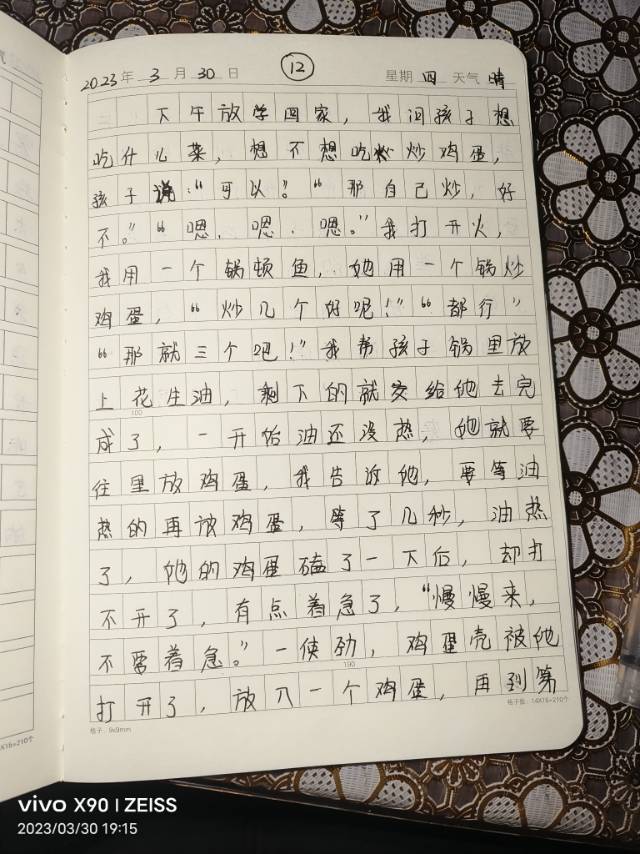 2023年 3月 30日 ⑫ 星期 四 天气 晴
下午放学回家，我问孩子想
吃什么菜，想不想吃炒鸡蛋，
孩子说："可以！""那自己炒，好
不。""嗯，嗯，嗯。"我打开火，
我用一个锅顿鱼，她用一个锅炒
鸡蛋，"炒几个好呢！""都行"
"那就三个吧！"我帮孩子锅里放
上花生油，剩下的就交给他去完
成了，一开始油还没热，她就要
往里放鸡蛋，我告诉他，要等油
热的再放鸡蛋，等了几秒，油热
了，他的鸡蛋磕了一下后，却打
不开了，有点着急了，"慢慢来，
不要着急。"一使劲，鸡蛋壳被他
打开了，放入一个鸡蛋，再到第
100
190
格子：9x9mm
格子数：14X15=210个
X15=210个
vivo X90 | ZEISS
2023/03/30 19:15